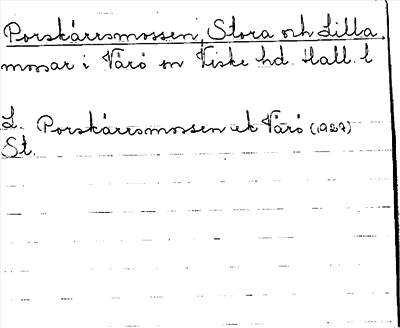 Porskärrsmossen, Stora och Lilla
mossar i Värö sn Viske hd. Hall. l
L. Porskärrsmossen ek Värö (1927)
St.